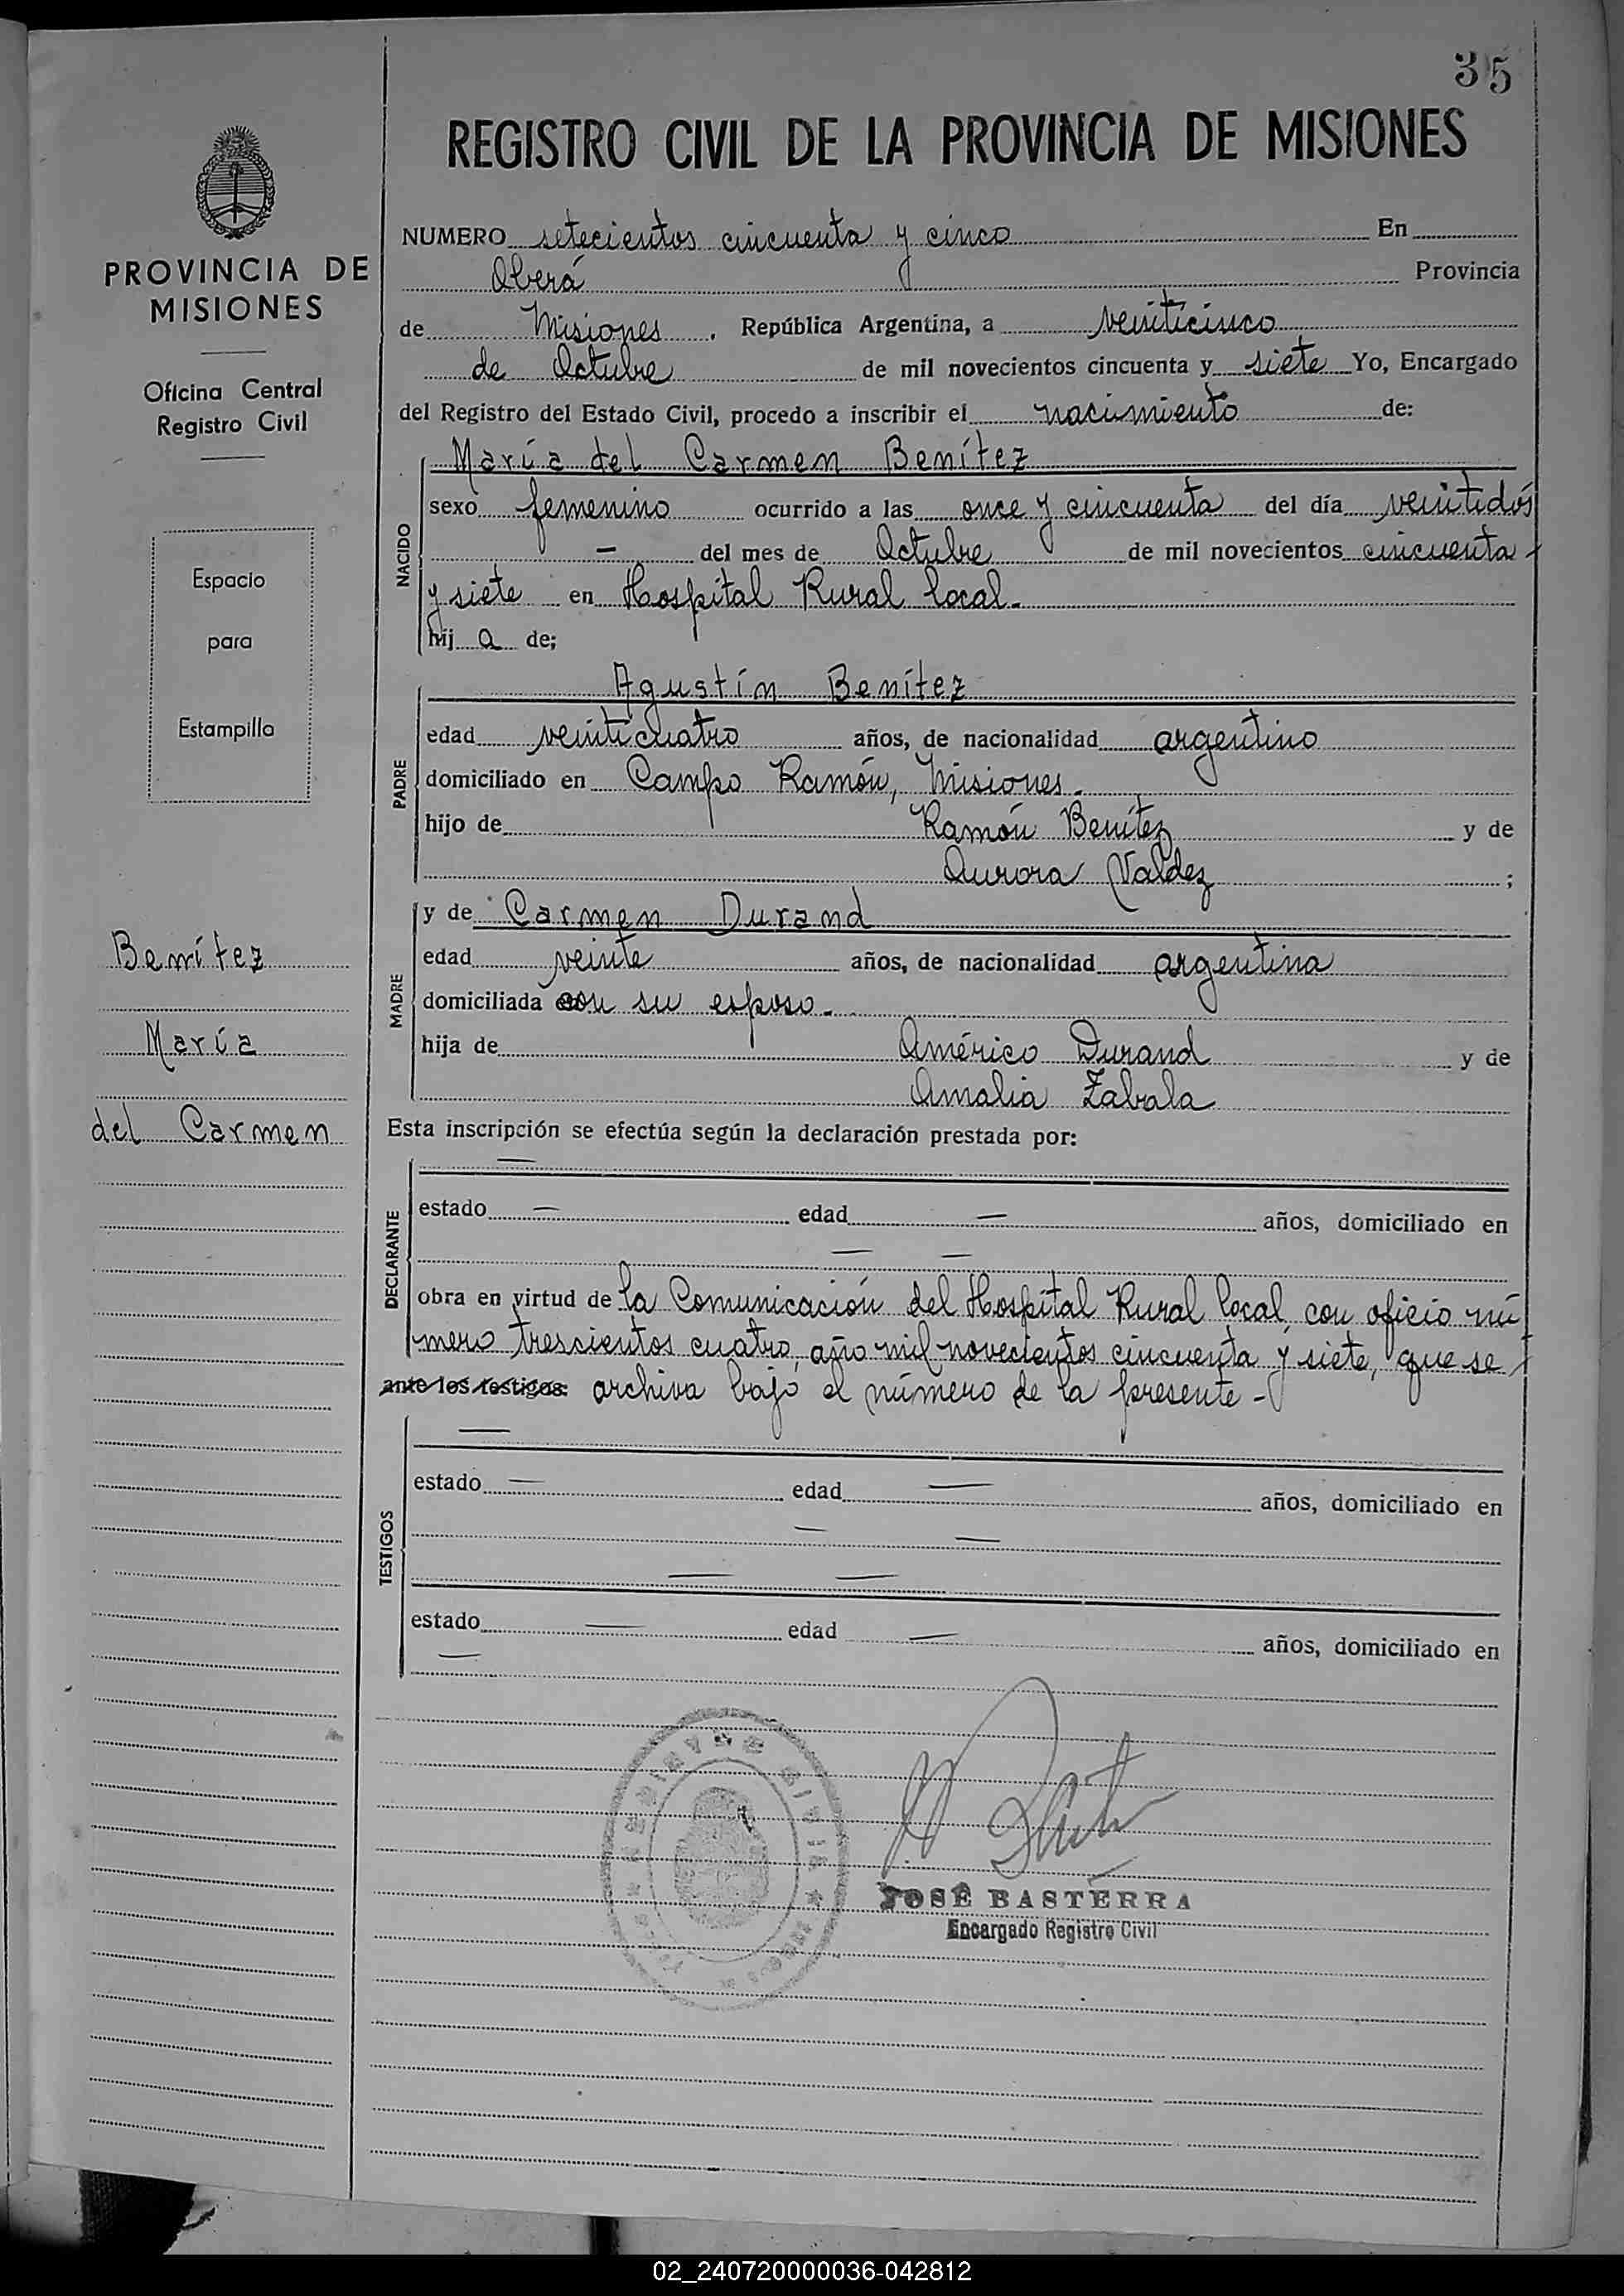 35
REGISTRO CIVIL DE LA PROVINCIA DE MISIONES
PROVINCIA DE
MISIONES
Oficina Central
Registro Civil
Espacio
para
Estampilla
Benítez
María
del Carmen
NUMERO setecientos cincuenta y cinco En
Oberá Provincia
de Misiones. República Argentina, a veinticinco
de Octubre de mil novecientos cincuenta y siete Yo, Encargado
del Registro del Estado Civil, procedo a inscribir el nacimiento de:
María del Carmen Benítez
NACIDO
sexo femenino ocurrido a las once y cincuenta del día veintidós
— del mes de Octubre de mil novecientos cincuenta
y siete en Hospital Rural local.
hij a de;
PADRE
Agustín Benítez
edad veinticuatro años, de nacionalidad argentino
domiciliado en Campo Ramón, Misiones.
hijo de Ramón Benítez y de
Aurora Valdez ;
MADRE
y de Carmen Durand
edad veinte años, de nacionalidad argentina
domiciliada con su esposo.
hija de Américo Durand y de
Amalia Zabala
Esta inscripción se efectúa según la declaración prestada por:
DECLARANTE
—
estado — edad — años, domiciliado en
— —
obra en virtud de la Comunicación del Hospital Rural local, con oficio nú
mero trescientos cuatro, año mil novecientos cincuenta y siete, que se
ante los testigos: archiva bajo el número de la presente -
TESTIGOS
—
estado — edad — años, domiciliado en
— —
— —
estado — edad — años, domiciliado en
—
REGISTRO CIVIL
JOSÉ BASTERRA
Encargado Registro Civil
02_240720000036-042812